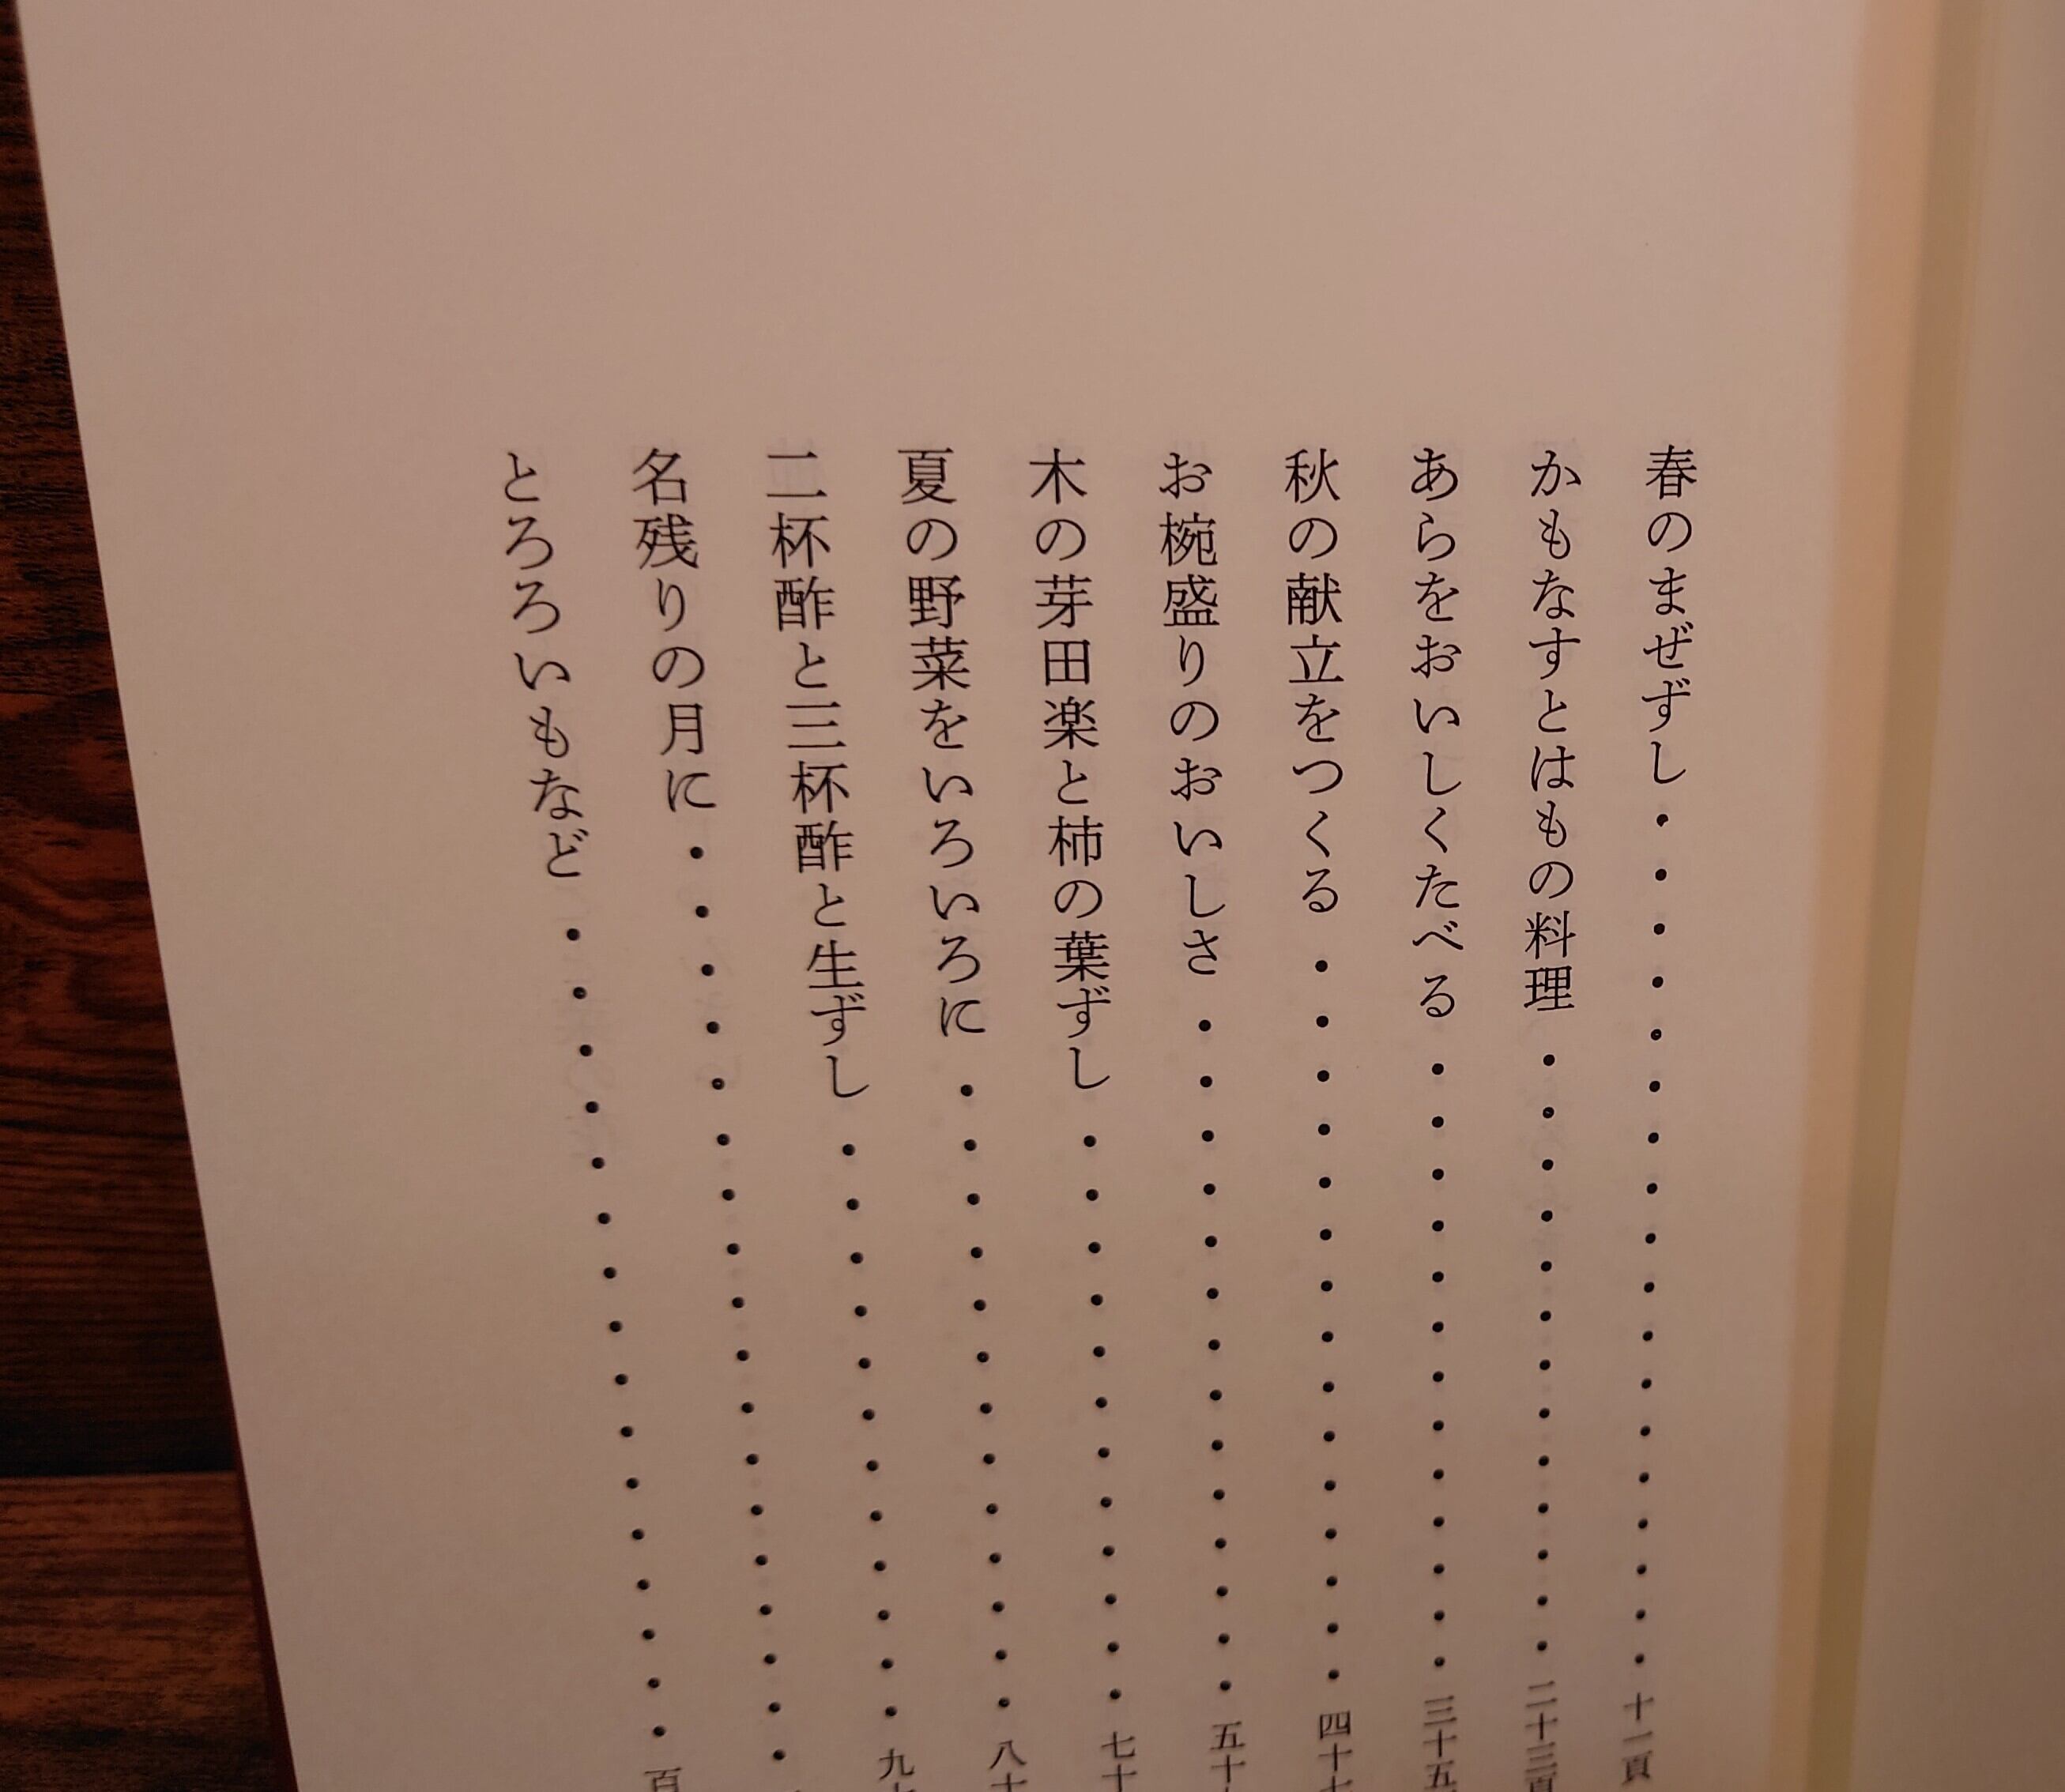 春のまぜずし・・・・・・・・・・・・・・・・・十一頁
かもなすとはもの料理・・・・・・・・・・・・・二十三頁
あらをおいしくたべる・・・・・・・・・・・・・三十五
秋の献立をつくる・・・・・・・・・・・・・・・四十七
お椀盛りのおいしさ・・・・・・・・・・・・・・五十
木の芽田楽と柿の葉ずし・・・・・・・・・・・・七十
夏の野菜をいろいろに・・・・・・・・・・・・・八十
二杯酢と三杯酢と生ずし・・・・・・・・・・・・九
名残りの月に・・・・・・・・・・・・・・・・・・
とろろいもなど・・・・・・・・・・・・・・・・百